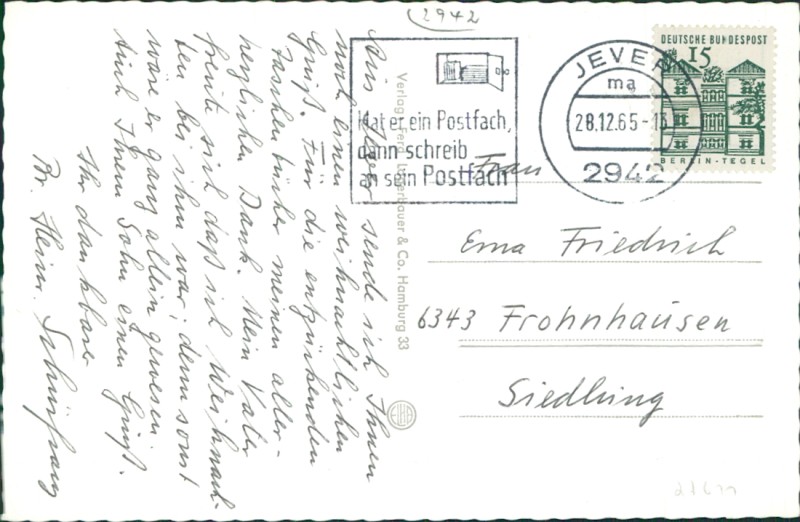 (2942
Aus Jever sende ich Ihnen
noch einen weihnachtlichen
Gruß. Für die entzückenden
Taschentücher meinen aller-
herzlichen Dank. Mein Vater
freute sich daß ich Weihnach-
ten bei ihm war, denn sonst
wäre er ganz allein gewesen.
Auch Ihrem Sohn einen Gruß.
Ihr dankbarer
Br. Heinr.
Verlag Ferd. Lagerbauer & Co. Hamburg 33
Hat er ein Postfach,
dann schreib
an sein Postfach
JEVER
ma
28.12.65-13
2942
DEUTSCHE BUNDESPOST
15
BERLIN-TEGEL
Frau
Erna Friedrich
6343 Frohnhausen
Siedlung